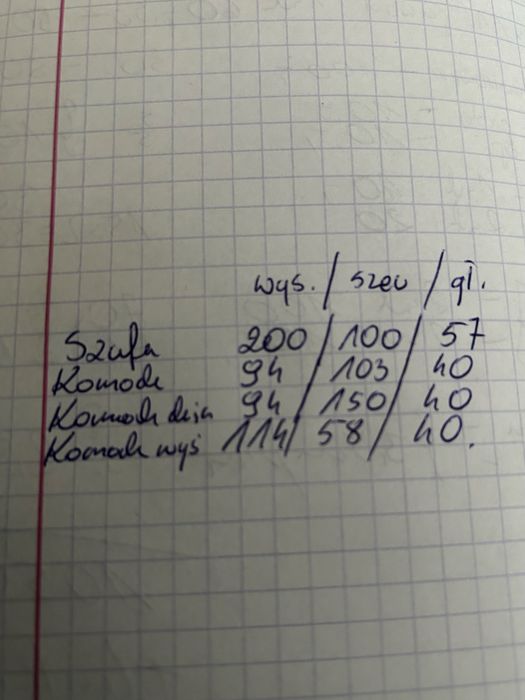 wys. / szer / gł.
Szafa 200 / 100 / 57
Komoda 94 / 103 / 40
Komoda duża 94 / 150 / 40
Komoda wys 114 / 58 / 40.